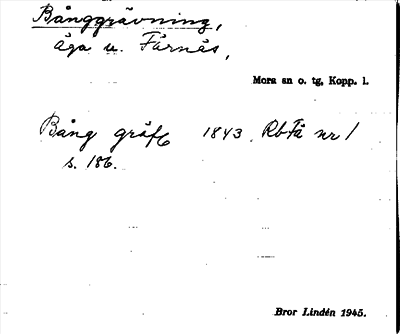 Bånggrävning,
äga u. Färnäs,
Mora sn o. tg, Kopp. l.
Bång gräft 1843. Rb Få nr 1
s. 186.
Bror Lindén 1945.